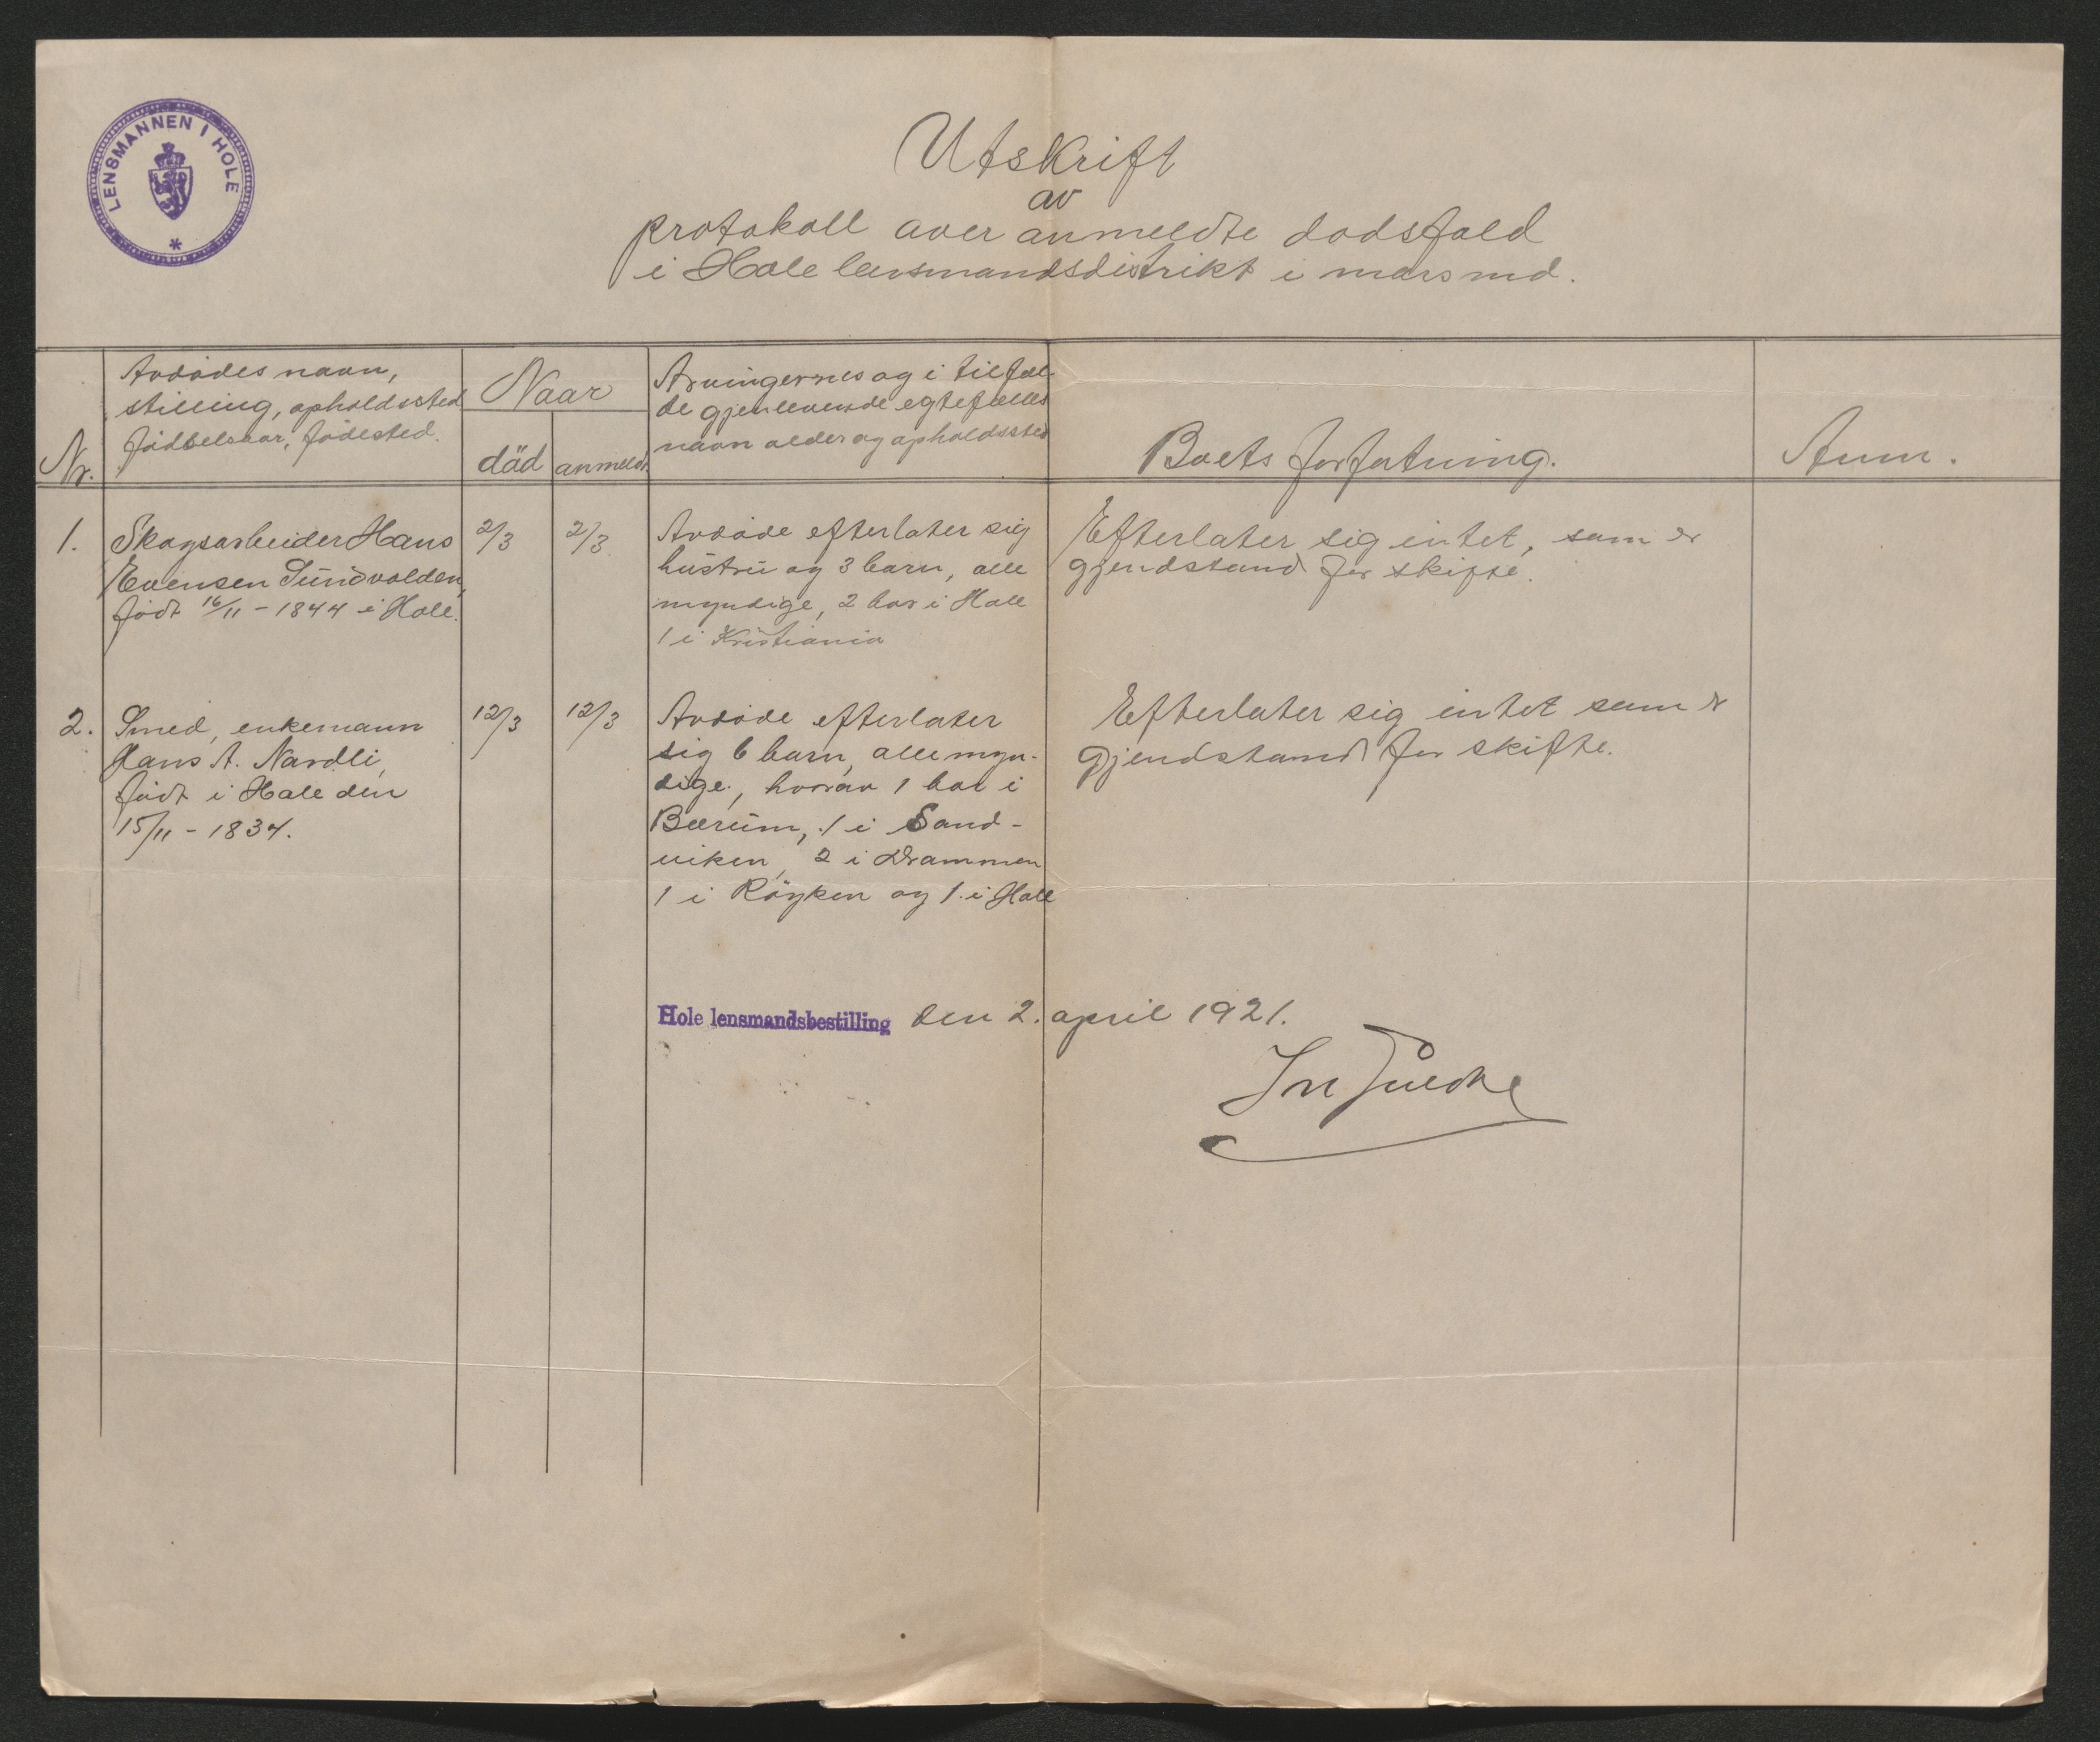 LENSMANNEN I HOLE
Utskrift
av
protokoll over anmeldte dødsfald
i Hole lensmandsdistrikt i mars md.
Nr.
Avdødes navn,
stilling, opholdssted
fødselsaar, fødested.
Naar
död
anmeldt
Arvingernes og i tilfæl-
de gjenlevende egtefælles
navn alder og opholdssted
Boets forfatning.
Anm.
1.
Skogsarbeider Hans
Evensen Sundvolden,
født 16/11 - 1844 i Hole.
2/3
2/3.
Avdøde efterlater sig
hustru og 3 barn, alle
myndige, 2 bor i Hole
1 i Kristiania
Efterlater sig intet, som er
gjendstand for skifte.
2.
Smed, enkemann
Hans A. Nardli,
født i Hole den
15/11 - 1834.
12/3
12/3
Avdøde efterlater
sig 6 barn, alle myn-
dige, hvorav 1 bor i
Bærum, 1 i Sand-
viken, 2 i Drammen
1 i Röyken og 1 i Hole
Efterlater sig intet som er
gjendstand for skifte.
Hole lensmandsbestilling den 2. april 1921.